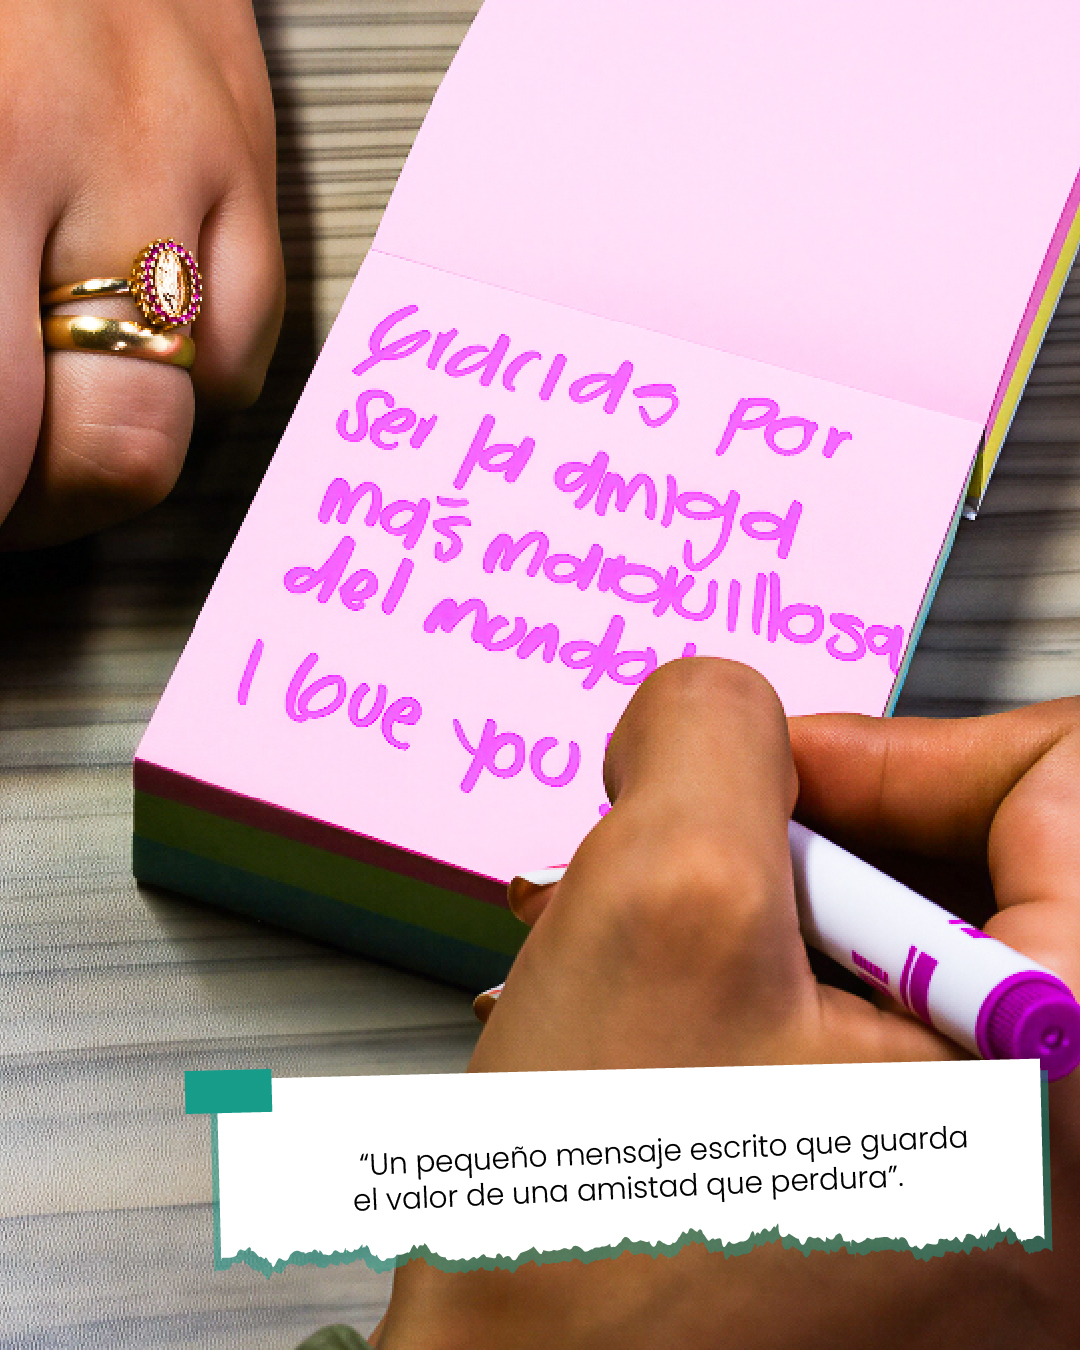 Gracias por
ser la amiga
más maravillosa
del mundo
I love you
“Un pequeño mensaje escrito que guarda
el valor de una amistad que perdura”.